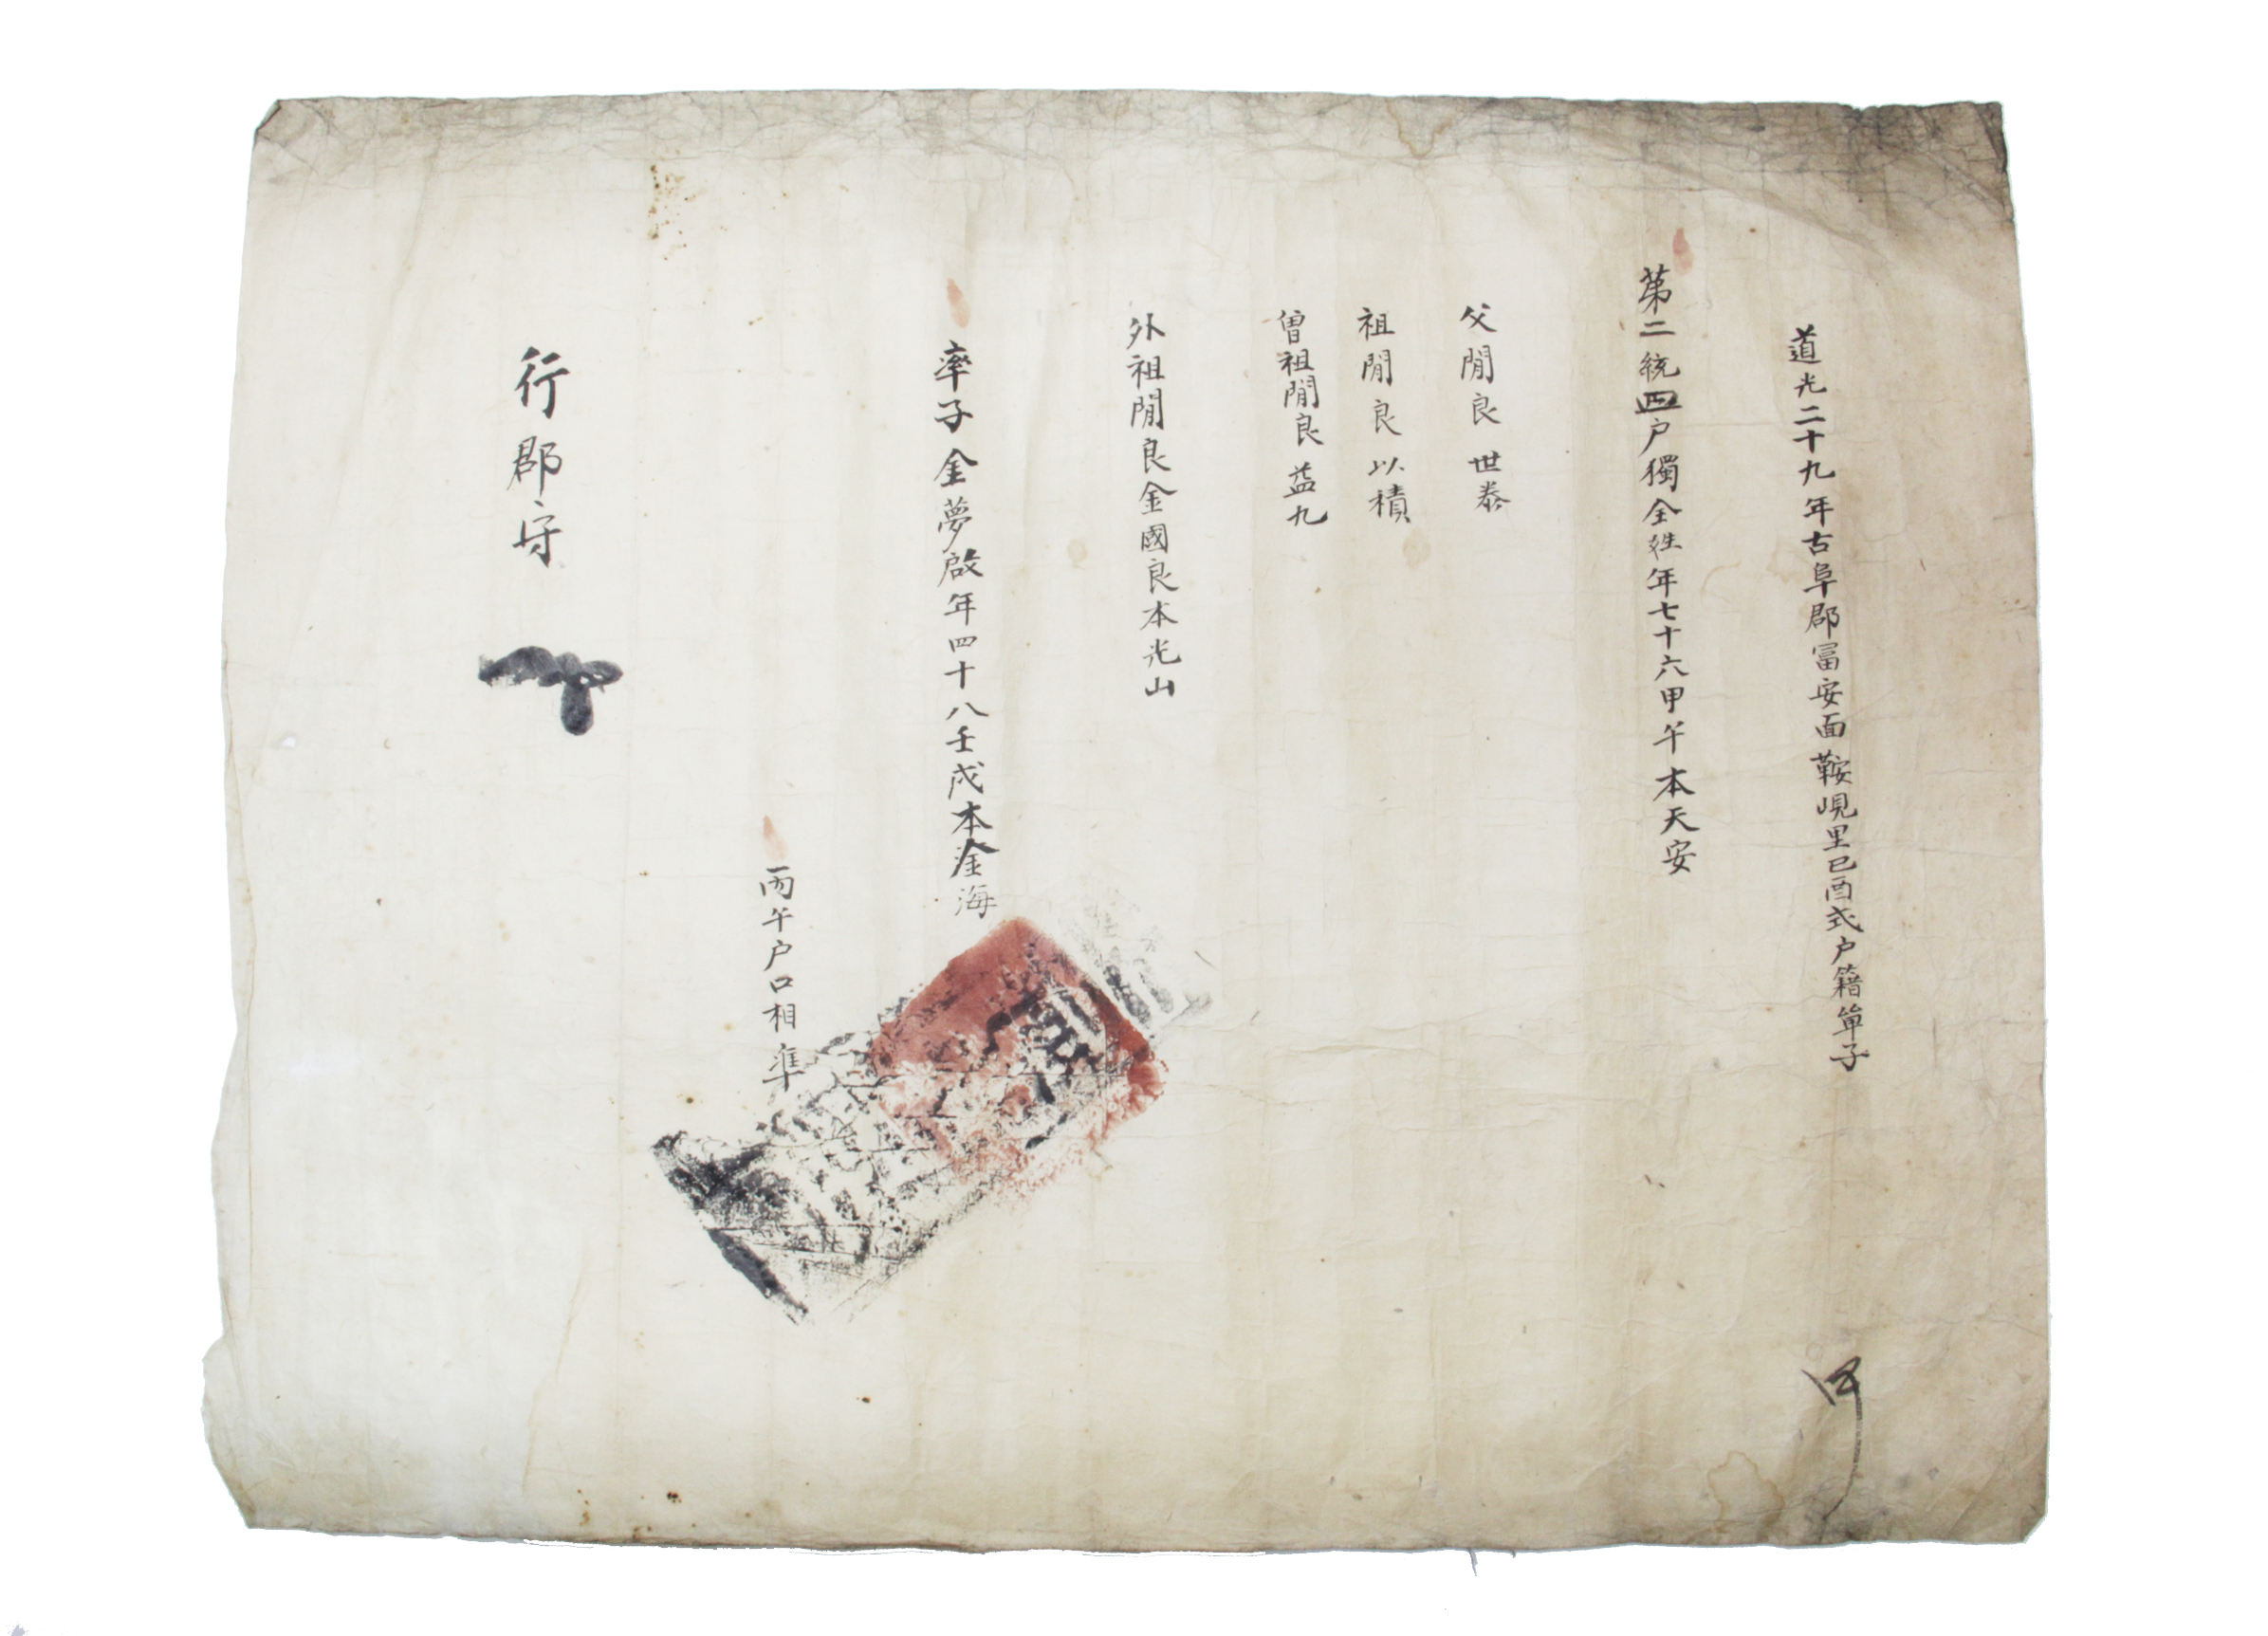 道光二十九年古阜郡富安面鞍峴里己酉式戶籍單子
第二統四戶獨全姓年七十六甲午本天安
父閒良世泰
祖閒良以積
曾祖閒良益九
外祖閒良金國良本光山
率子金夢啟年四十八壬戌本金海
丙午戶口相準
行郡守